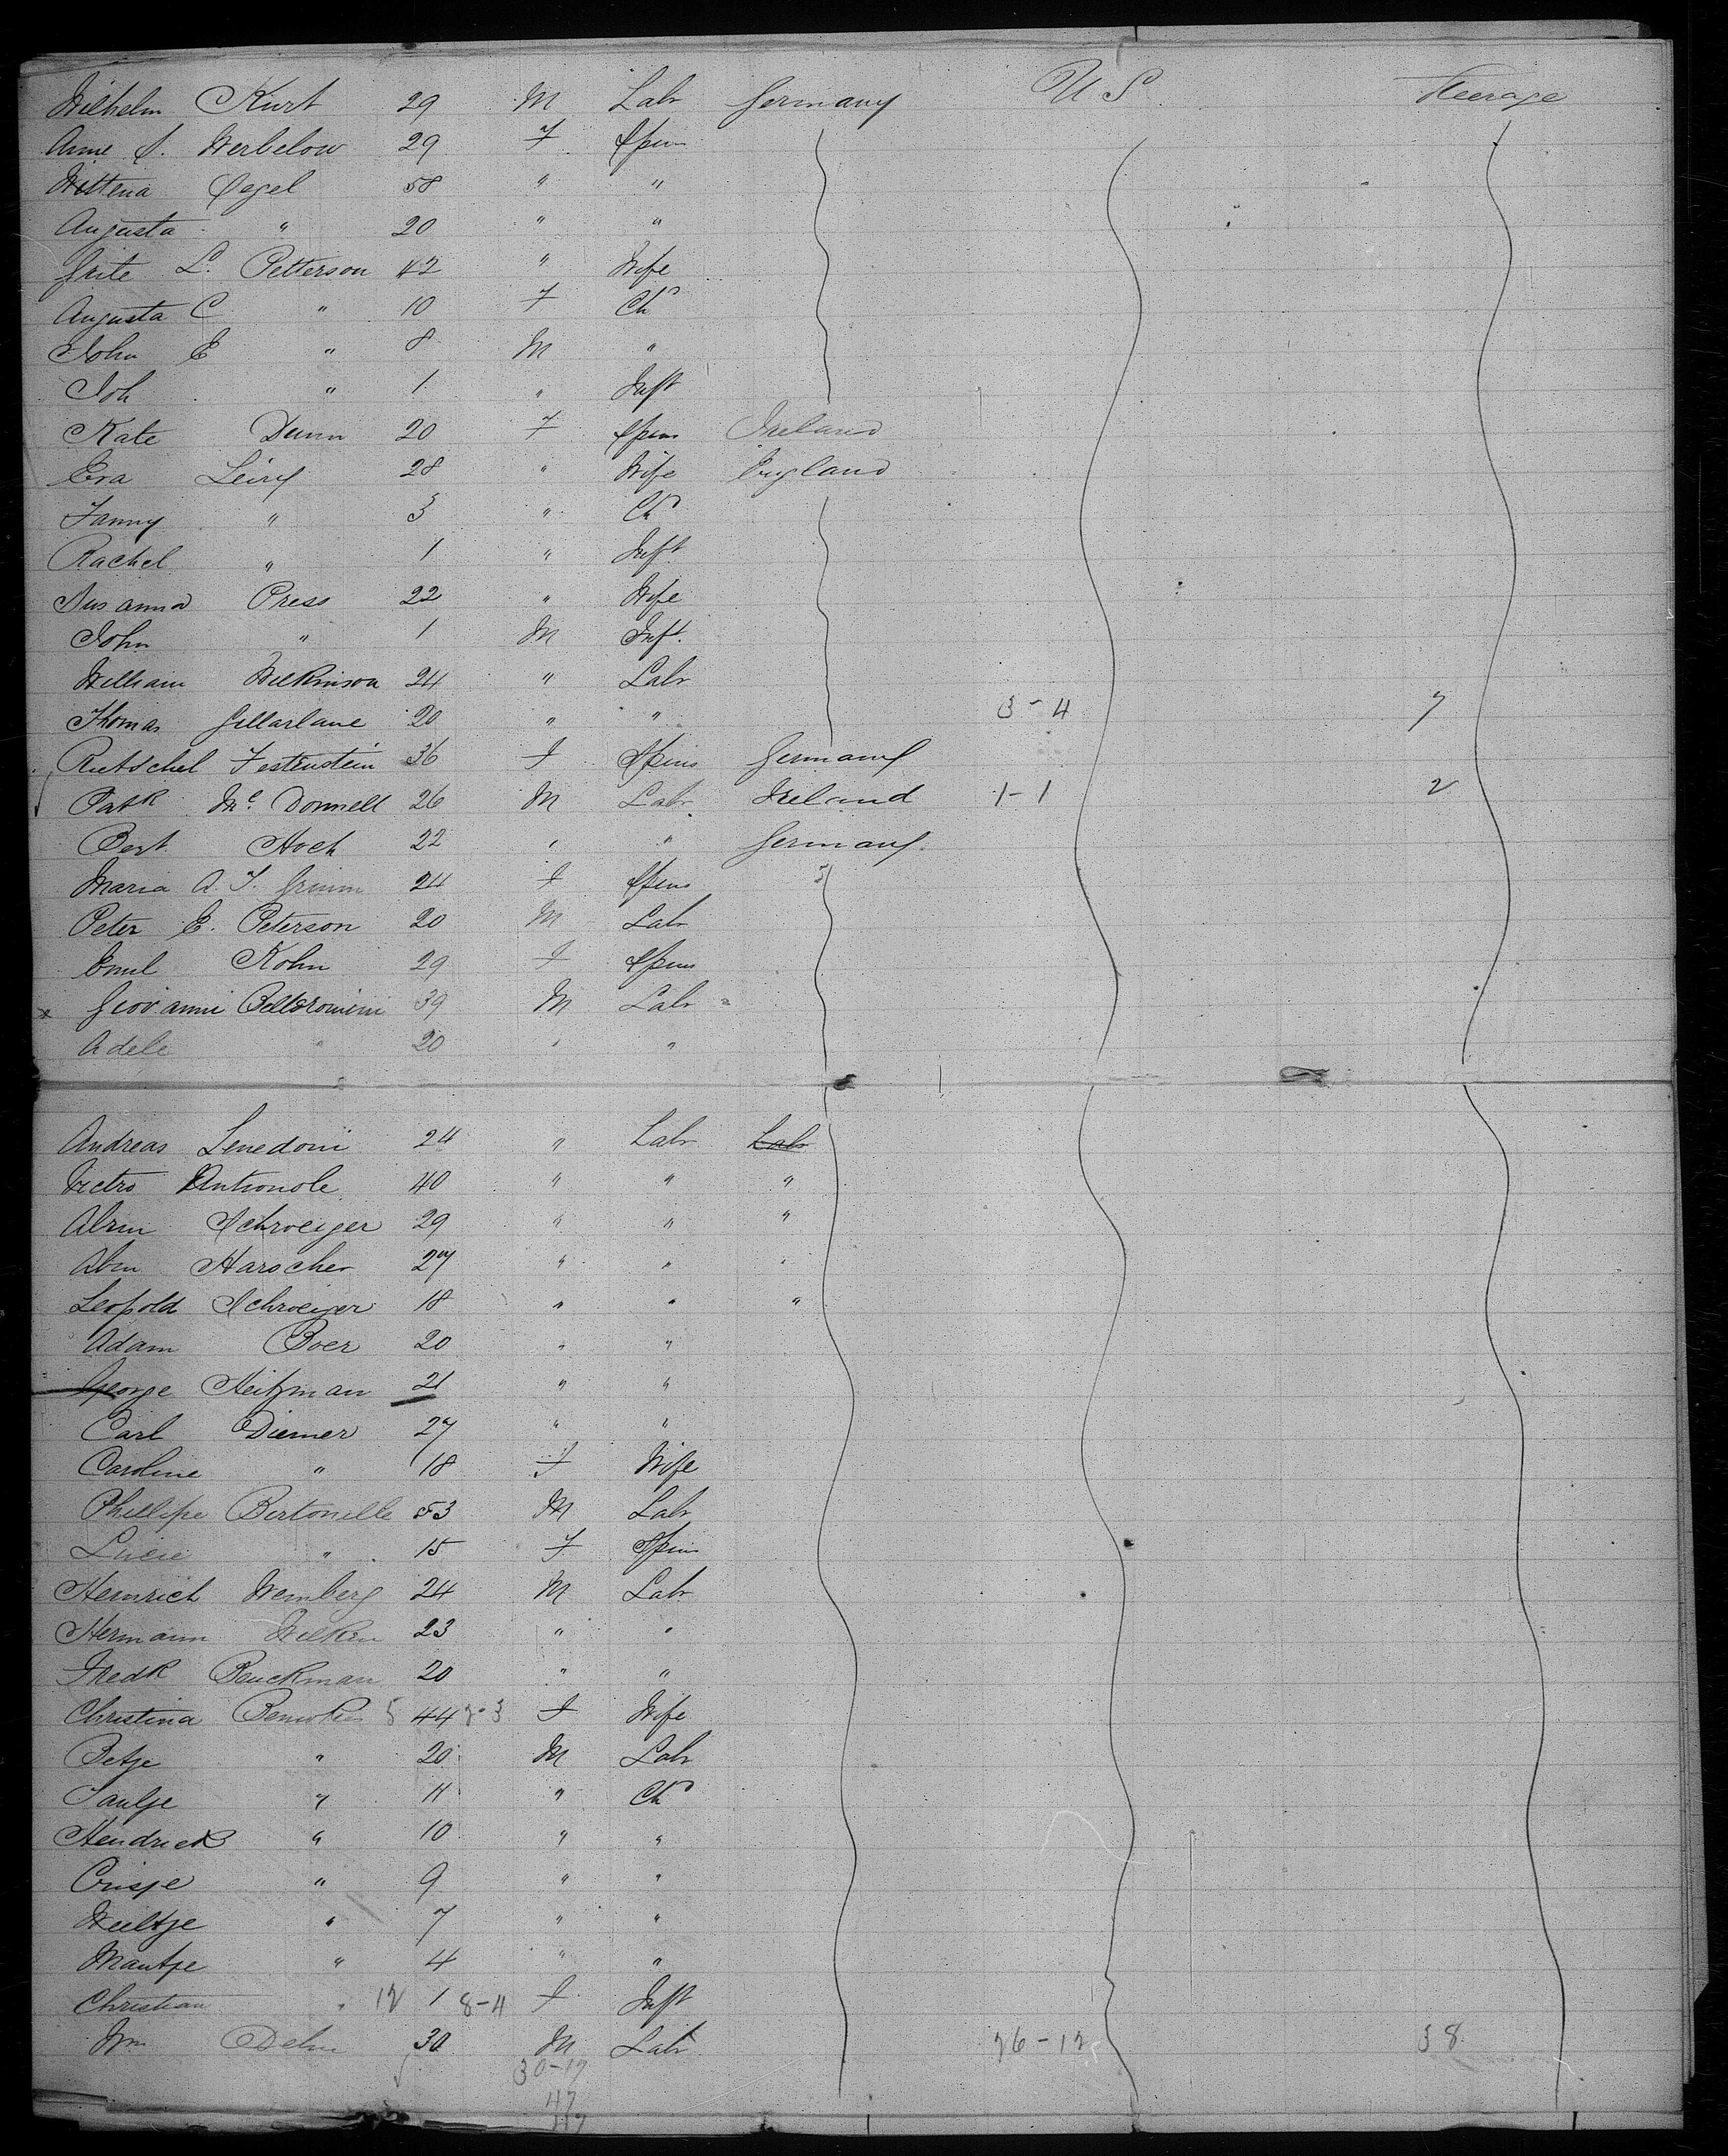 Wilhelm Kurt 29 M Labr Germany U S. Steerage
Anne S. Werbelow 29 F Spins
Pagel 58 " "
Augusta " 20 " "
Grite L. Petterson 42 " Wife
Augusta C " 10 F Chd
John E " 8 M "
Joh " 1 " Inft
Kate Dunn 20 F Spins Ireland
Eva Leivy 28 " Wife England
Fanny " 3 " Chd
Rachel " 1 " Inft
Susanna Press 22 " Wife
John " 1 M Inft.
William Wilkinson 24 " Labr
Thomas 20 " " 3-4 7
Rutschel Festenstein 36 F Spins Germany
Patk Mc Donnell 26 M Labr Ireland 1-1 2
Bert Hoch 22 " " Germany
Maria A. F. Grimm 24 F Spins
Peter E. Peterson 20 M Labr
Emil Kohn 29 F Spins
x Giovanni 39 M Labr
Adele " 20 " "
Andreas Lenedoni 24 " Labr Labr
40 " " "
Abrm Schroeiger 29 " " "
Abm Harscher 27 " " "
Leopold Schroeiger 18 " " "
Adam Boer 20 " "
George Heitzman 21 " "
Carl Diemer 27 " "
Caroline " 18 F Wife
Phillipe Bertonelle 53 M Labr
Lucie " 15 F Spins
Heinrich Wemberg 24 M Labr
Hermann Wilken 23 " "
Fredk Beuckman 20 " "
Christina 5 44 3 F Wife
Betje " 20 M Labr
" 11 " Chd
Hendrick " 10 " "
" 9 " "
" 7 " "
Mantje " 4 " "
Christian " 12 1 8-4 F Inft
Wm Dehn 30 M Labr 26-12 38
30-17
47